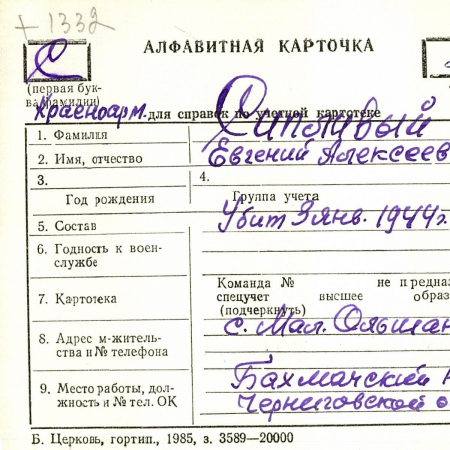 +1332
АЛФАВИТНАЯ КАРТОЧКА
С
(первая бук-
ва фамилии)
Красноарм. для справок по учетной картотеке
1. Фамилия Сипливый
2. Имя, отчество Евгений Алексеев
3. 4.
Год рождения Группа учета
5. Состав Убит 3 янв. 1944г.
6. Годность к воен-
службе
Команда № не предназ
7. Картотека спецучет высшее образ
(подчеркнуть)
8. Адрес м-житель-
ства и № телефона с. Мал. Ольшан
9. Место работы, дол-
жность и № тел. ОК Бахмачский
Черниговской о
Б. Церковь, гортип., 1985, з. 3589—20000